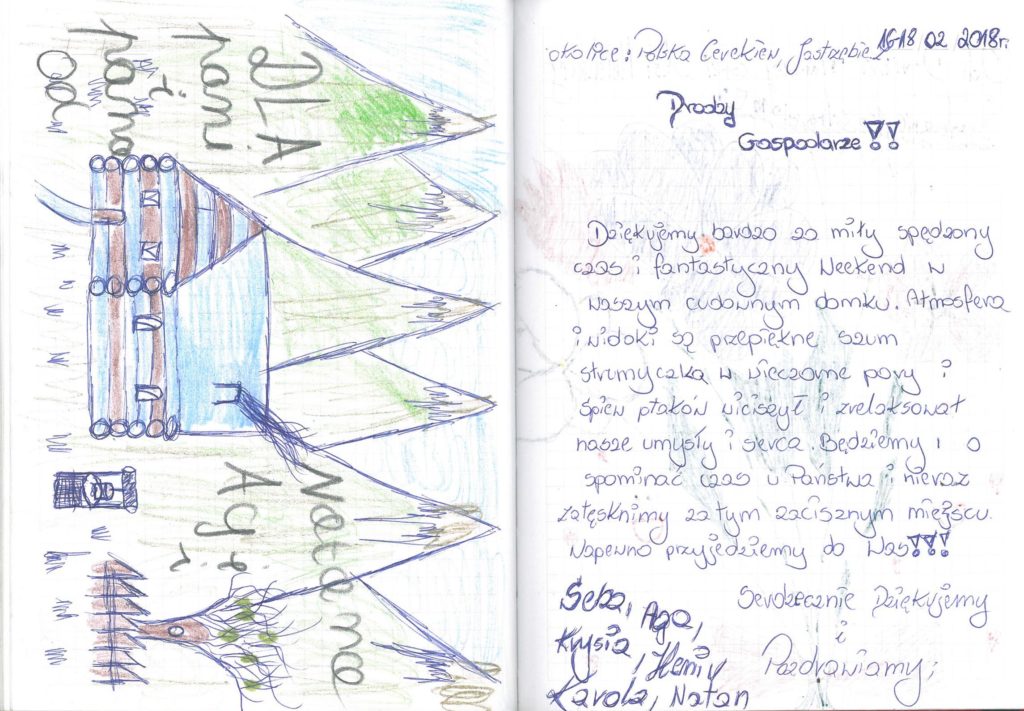 DLA
pani
i
pana
od
Natana
Agi
i
16-18 02 2018r.
okolice: Polska Cerekiew, Jastrzębie Z.
Drodzy
Gospodarze!!
Dziękujemy bardzo za miły spędzony
czas i fantastyczny weekend w
waszym cudownym domku. Atmosfera
i widoki są przepiękne szum
strumyczka w wieczorne pory i
śpiew ptaków wiciszył i zrelaksował
nasze umysły i serca. Będziemy o
spominać czas u Państwa i nieraz
zatęsknimy za tym zacisznym miejscu.
Napewno przyjedziemy do Was!!!
Serdzecznie Dziękujemy
i
Pozdrawiamy;
Seba, Aga,
Krysia, Heniu
Karola, Natan